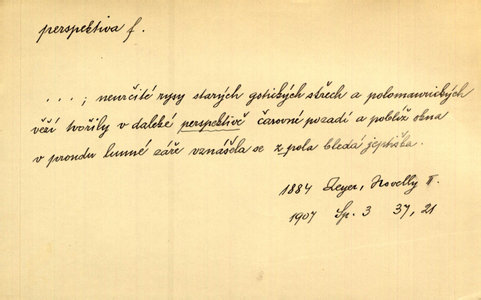 perspektiva f.
. . . ; neurčité rysy starých gotických střech a polomaurických
věží tvořily v daleké perspektivě čarovné pozadí a poblíž okna
v proudu lunné záře vznášela se z pola bledá jeptiška.
1884 Zeyer, Novelly II.
1907 Sp. 3 37, 21